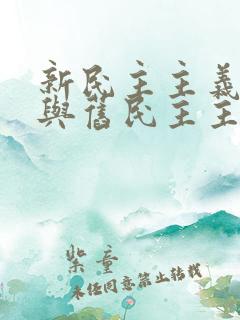 新民主主義
與舊民主主
紫童
未经同意禁止转载